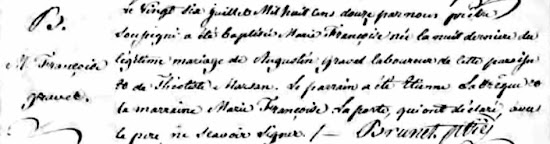 B.
M. Françoise
gravel.
Le vingt six juillet Mil huit cens douze par nous prêtre
Soussigné a été baptisée Marie Françoise née la nuit derniere du
légitime mariage de Augustin Gravel laboureur de cette paroisse
& de Théotiste Marsan. Le parrain a été Etienne
la marraine Marie Françoise Laporte, qui ont declaré, avec
le pere ne scavoir signer. /— Brunet